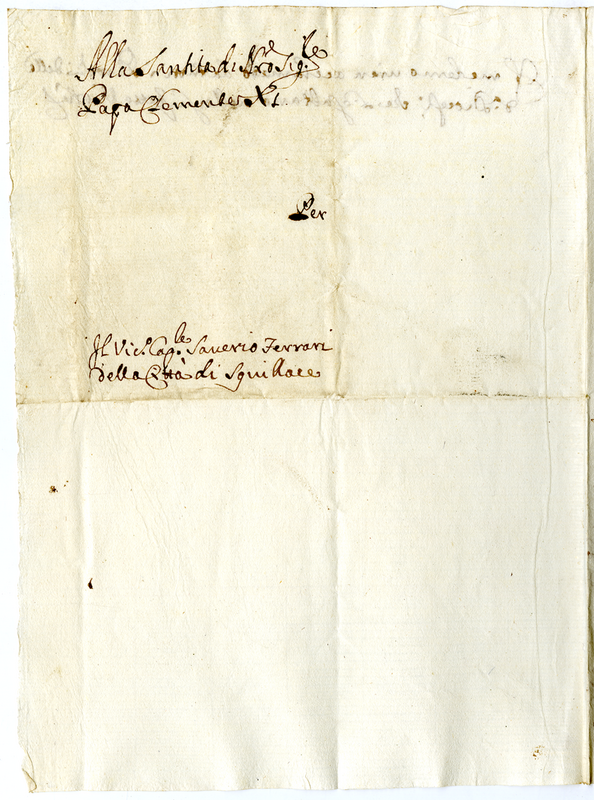 Alla Santità di Nro Sig.re
Papa Clemente XI
Per
Il Vic.o Cap.le Saverio Ferrari
della Città di Squillace